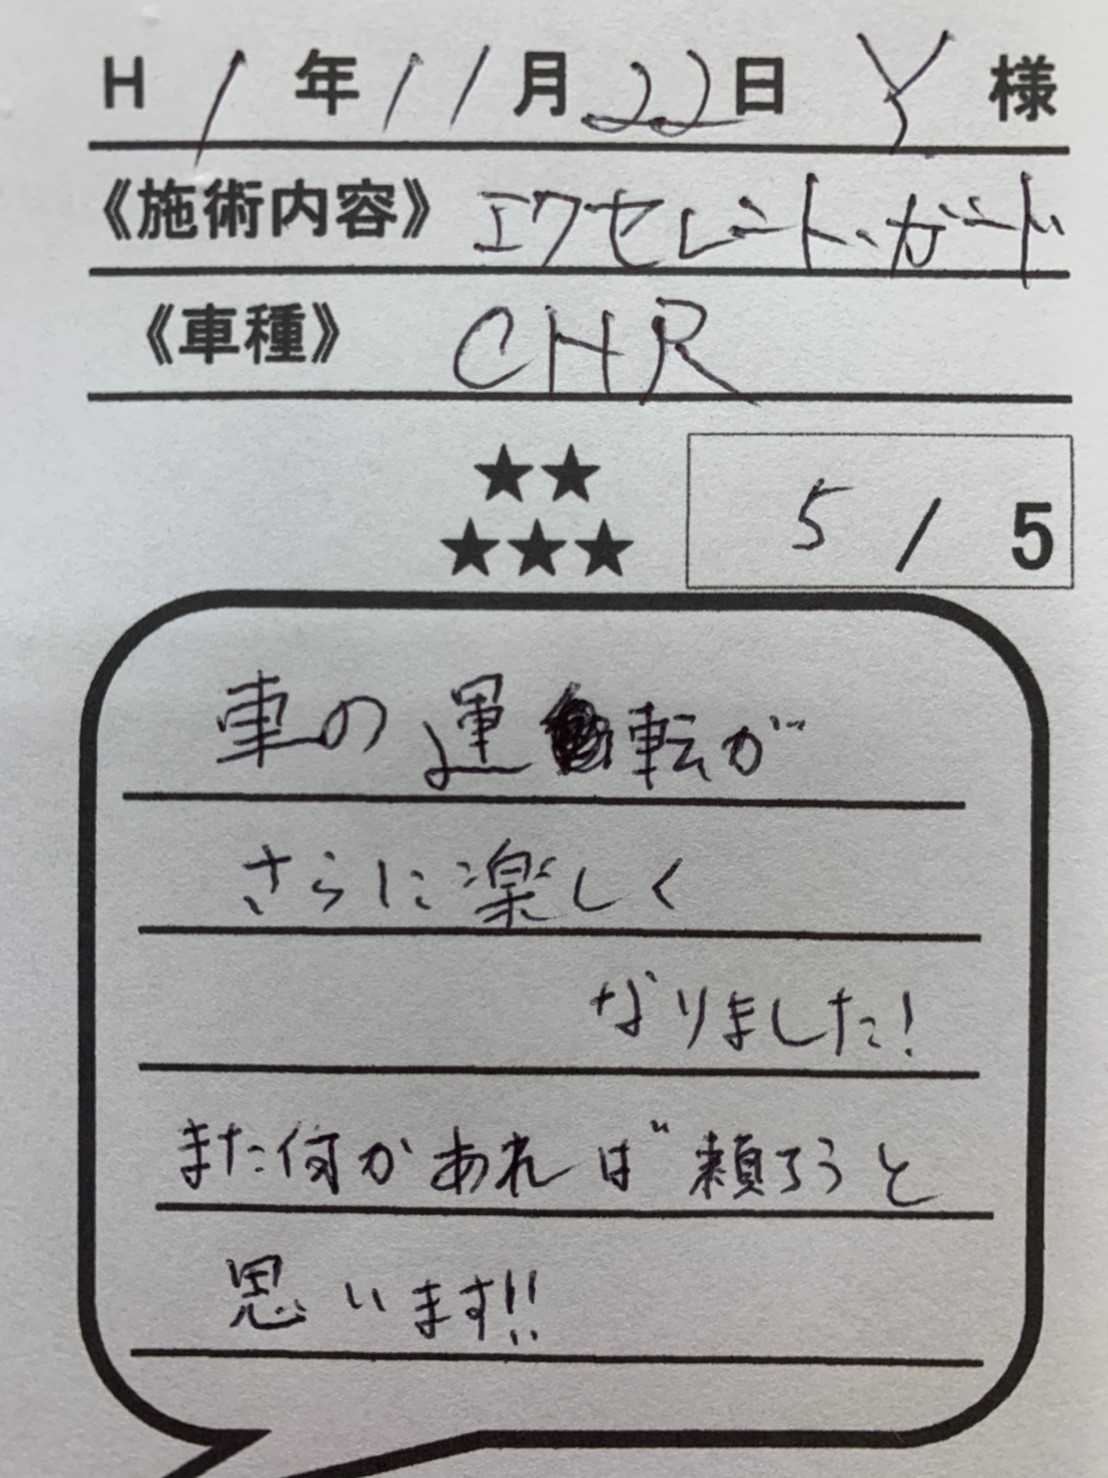 H 1年11月22日 Y 様
《施術内容》 エクセレント・ガード
《車種》 CHR
★★
★★★ 5 / 5
車の運転が
さらに楽しく
なりました!
また何かあれば頼ろうと
思います!!